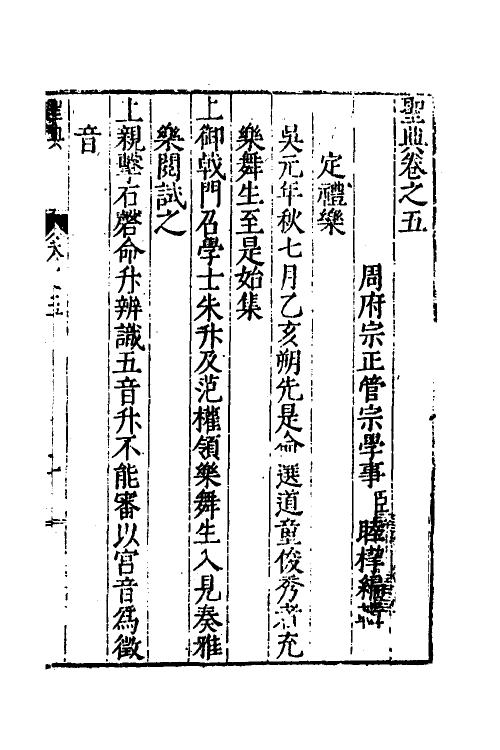 聖典卷之五
周府宗正管宗學事臣睦㮮編
定禮樂
吳元年秋七月乙亥朔先是命選道童俊秀者充
樂舞生至是始集
上御戟門召學士朱升及范權領樂舞生入見奏雅
樂閱試之
上親擊石磬命升辨識五音升不能審以宮音為徵
音
聖典